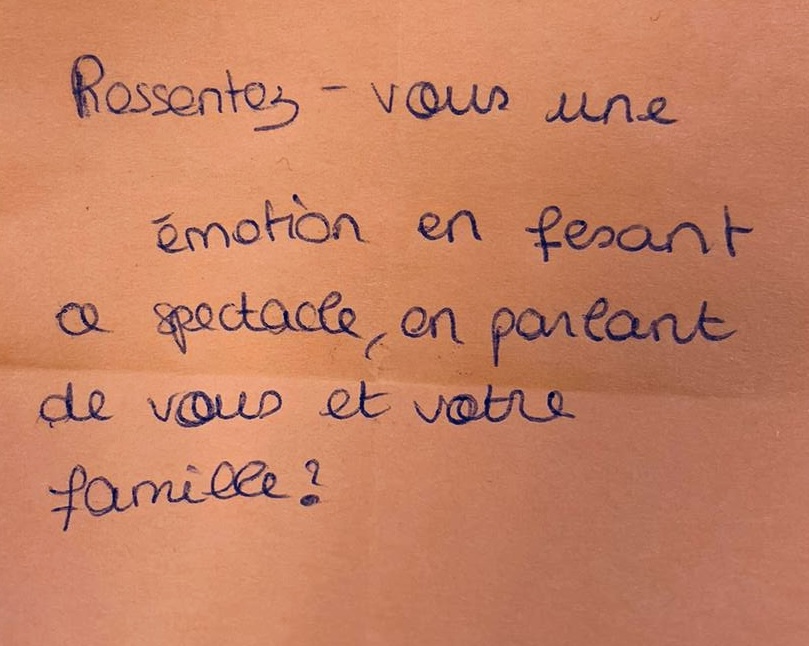 Ressentez-vous une
émotion en fesant
ce spectacle, en parlant
de vous et votre
famille?